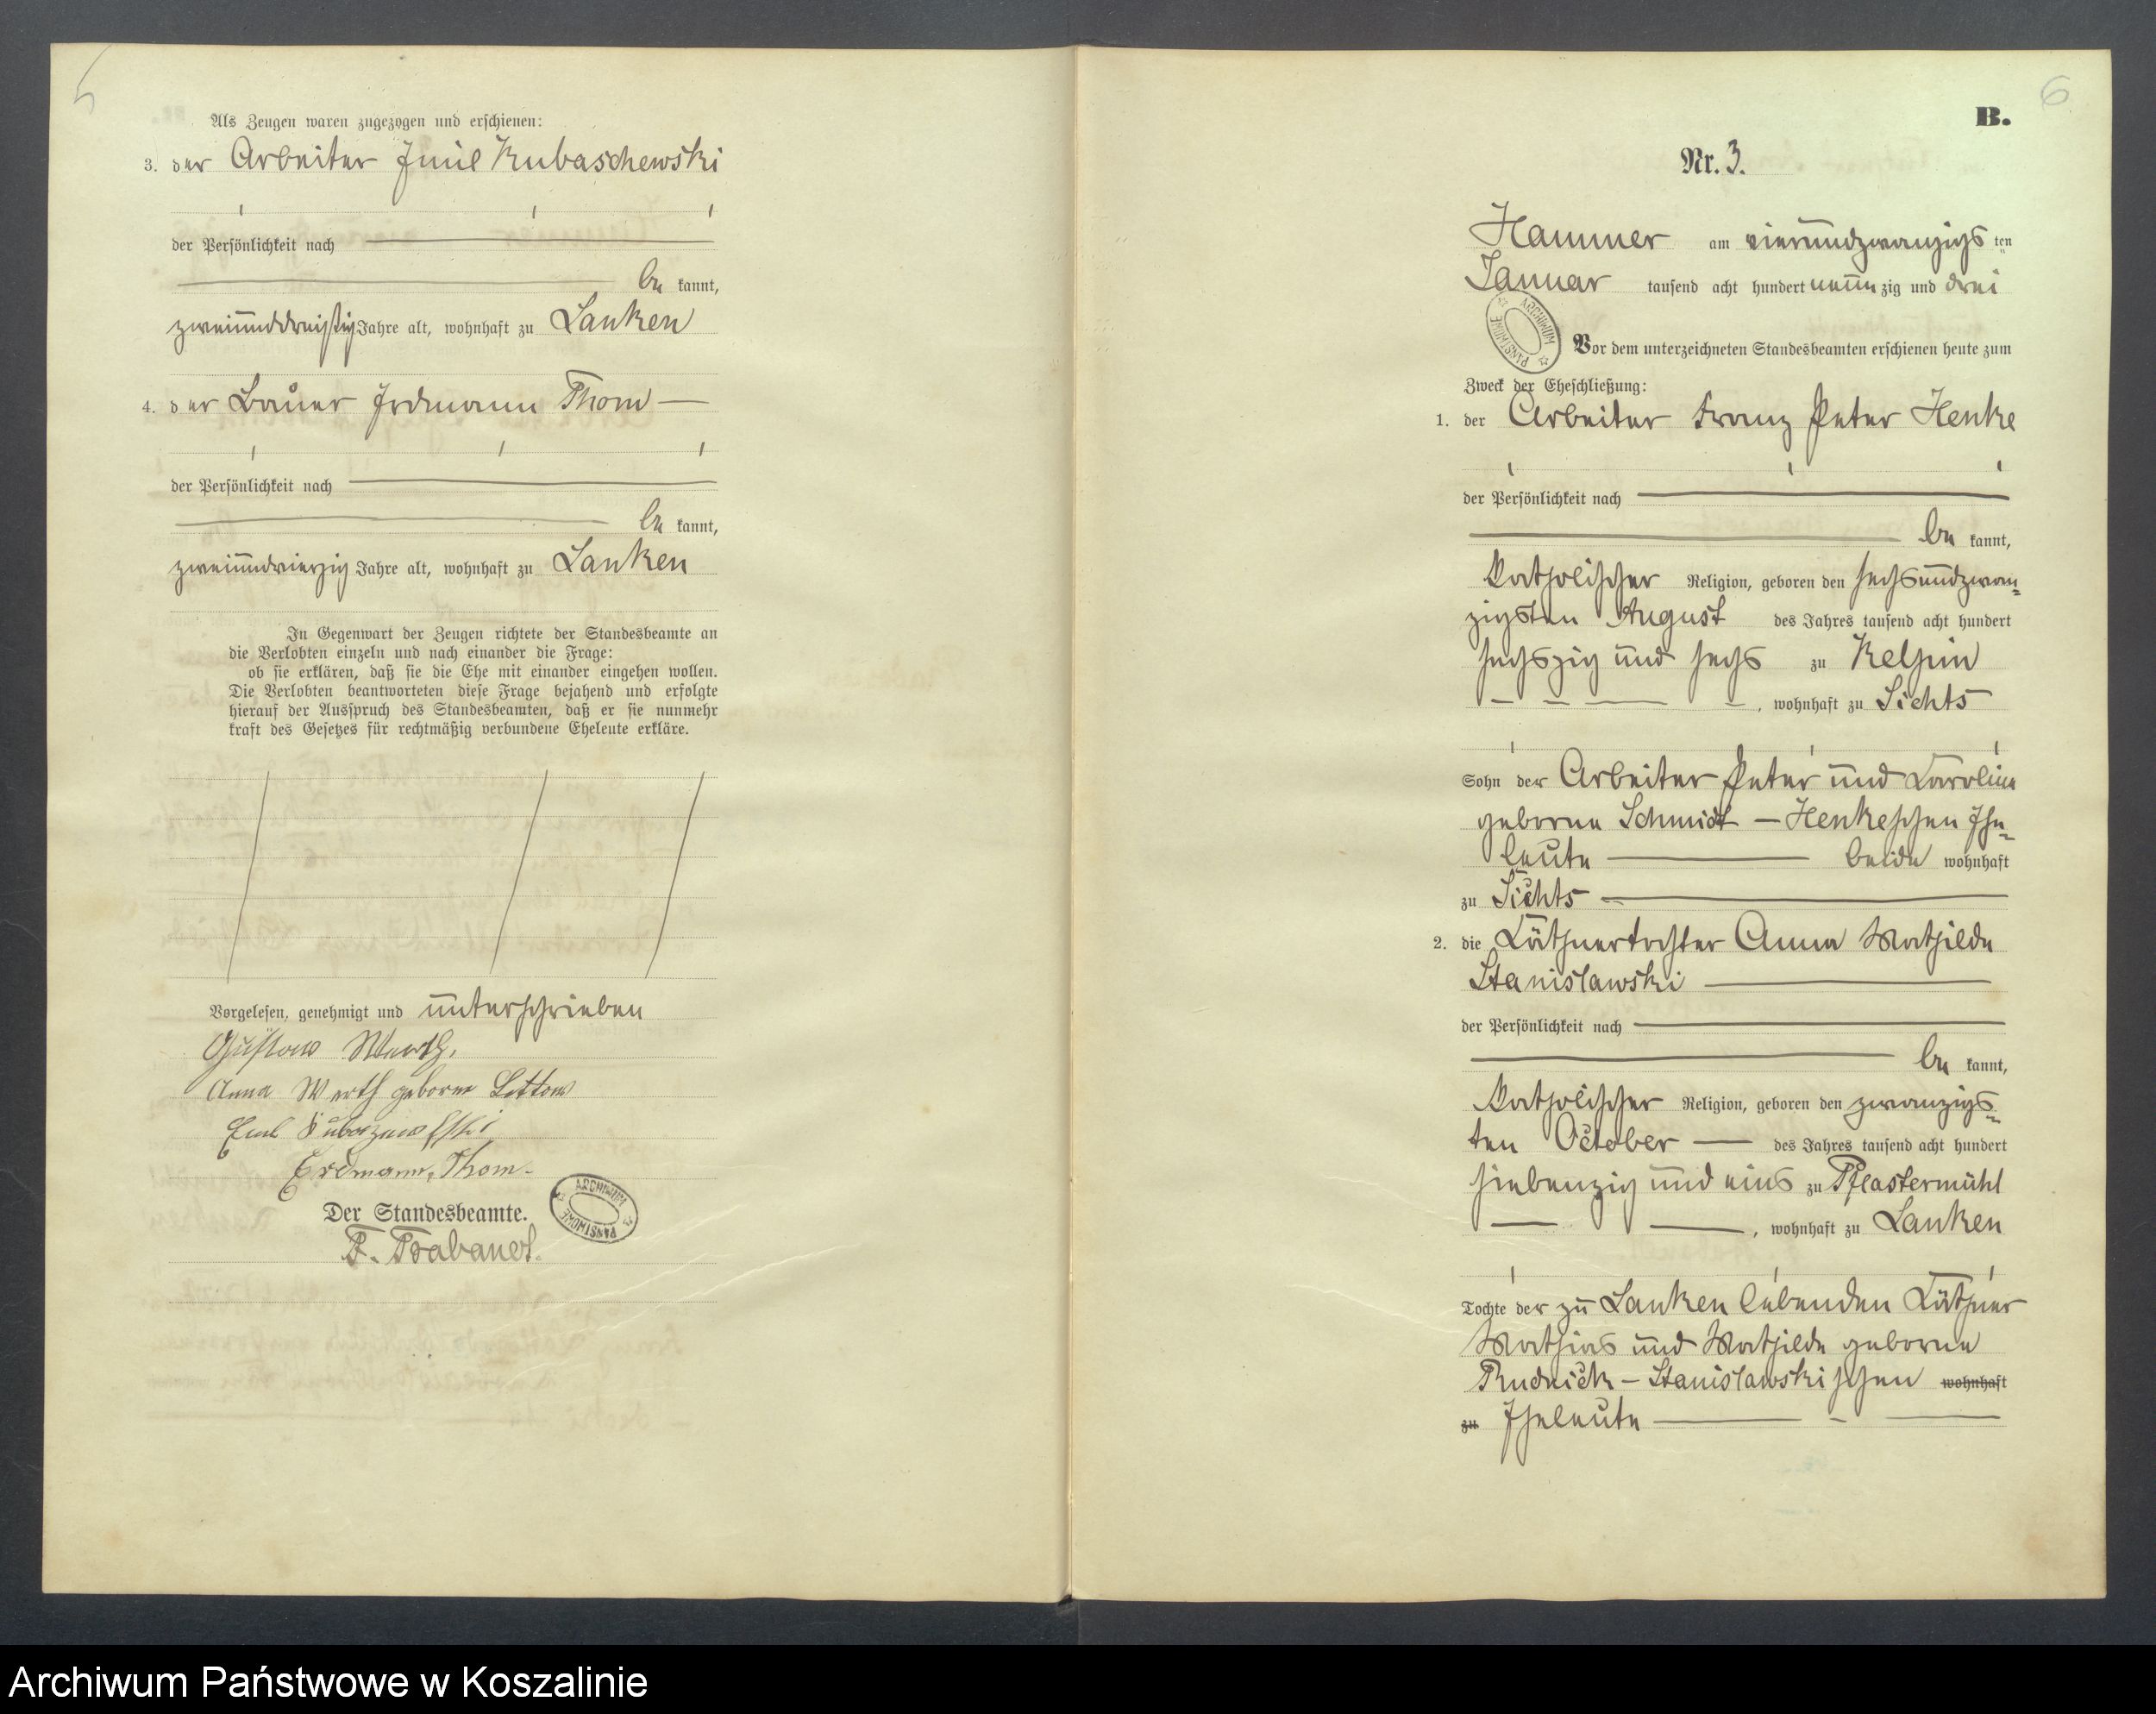 5
Als Zeugen waren zugezogen und erschienen:
3. der Arbeiter Emil Kubaschewski
der Persönlichkeit nach
be kannt,
zweiunddreißig Jahre alt, wohnhaft zu Lanken
4. der Bauer Erdmann Thom
der Persönlichkeit nach
be kannt,
zweiundvierzig Jahre alt, wohnhaft zu Lanken
In Gegenwart der Zeugen richtete der Standesbeamte an
die Verlobten einzeln und nach einander die Frage:
ob sie erklären, daß sie die Ehe mit einander eingehen wollen.
Die Verlobten beantworteten diese Frage bejahend und erfolgte
hierauf der Ausspruch des Standesbeamten, daß er sie nunmehr
kraft des Gesetzes für rechtmäßig verbundene Eheleute erkläre.
Vorgelesen, genehmigt und unterschrieben
Gustav Werth.
Anna Werth geborne Lottow
Emil
Erdmann Thom
ARCHIWUM PAŃSTWOWE
Der Standesbeamte.
F. Trabandt.
6
B.
Nr. 3.
Hammer am vierundzwanzigs ten
Januar tausend acht hundert neun zig und drei
ARCHIWUM PAŃSTWOWE
Vor dem unterzeichneten Standesbeamten erschienen heute zum
Zweck der Eheschließung:
1. der Arbeiter Franz Peter Henke
der Persönlichkeit nach
be kannt,
katholischer Religion, geboren den sechsundzwan=
zigsten August des Jahres tausend acht hundert
sechszig und sechs zu Kelpin
, wohnhaft zu Sichts
Sohn der Arbeiter Peter und Caroline
geborne Schmidt – Henkeschen Ehe=
leute beide wohnhaft
zu Sichts
2. die Käthnertochter Anna Mathilde
Stanislawski
der Persönlichkeit nach
be kannt,
katholischer Religion, geboren den zwanzigs=
ten October des Jahres tausend acht hundert
siebenzig und eins zu Pflastermühl
, wohnhaft zu Lanken
Tochte der zu Lanken lebenden Käthner
Mathias und Mathilde geborne
Rudnick – Stanislawskischen wohnhaft
zu Eheleute
Archiwum Państwowe w Koszalinie